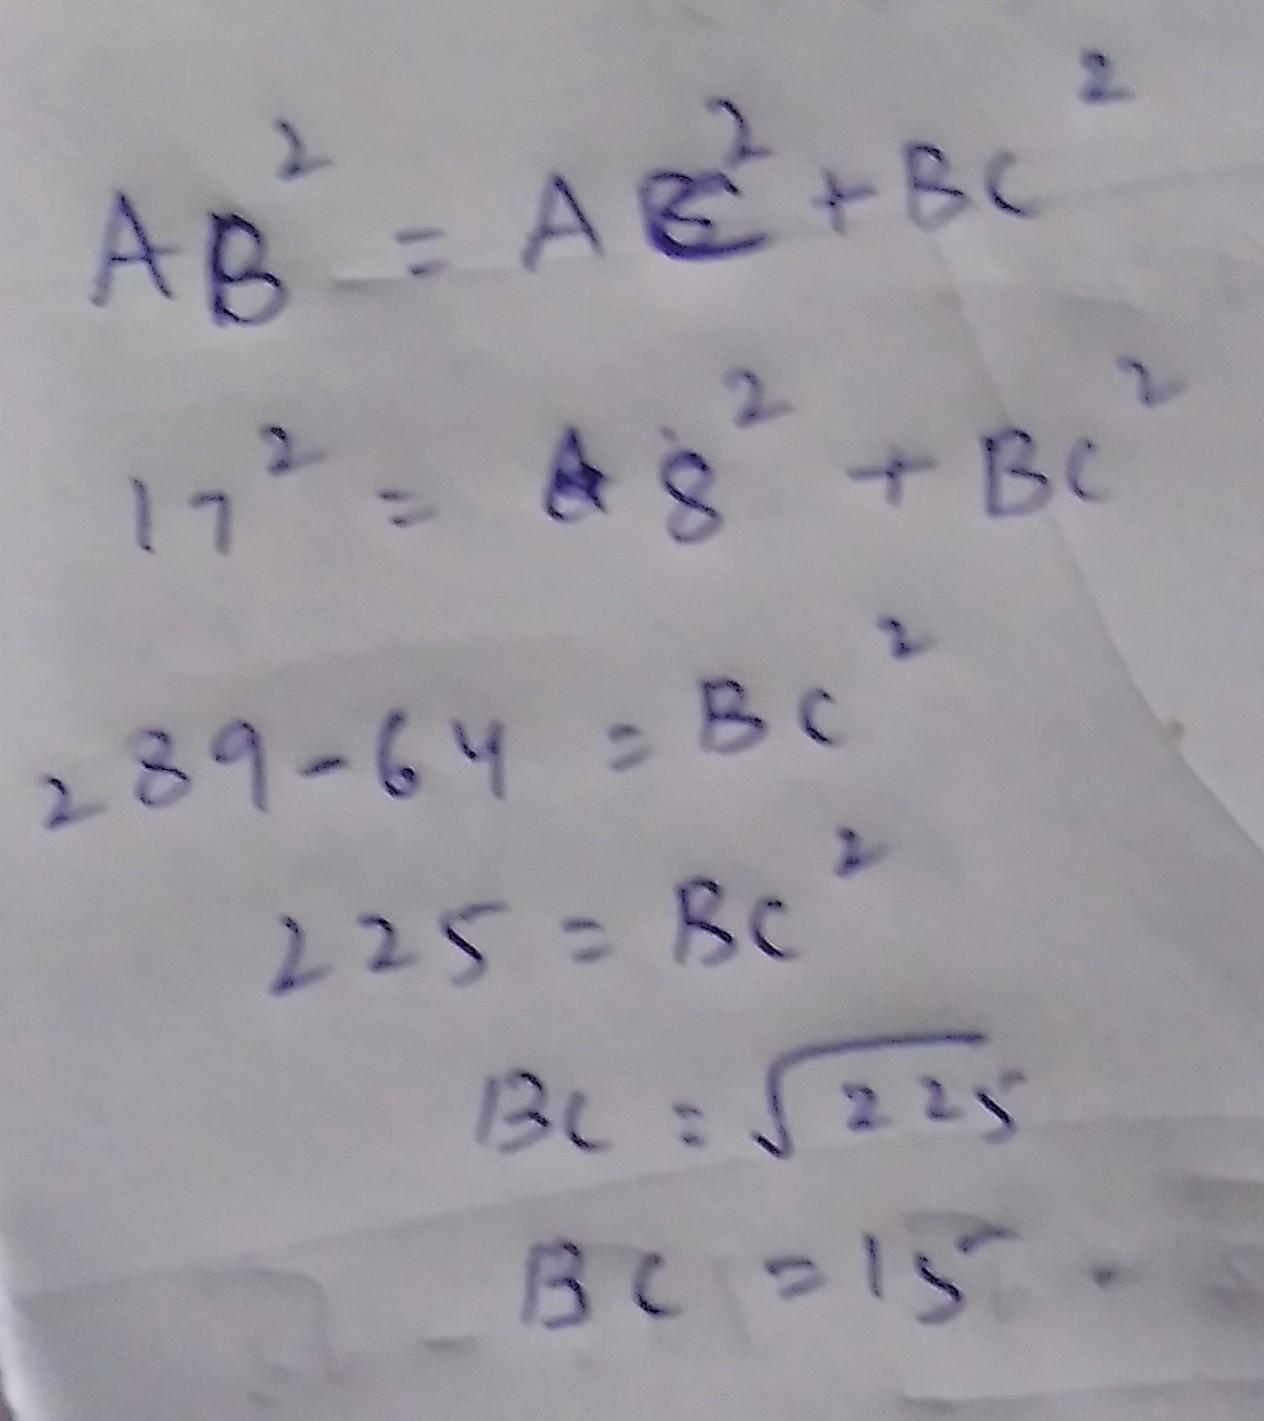 AB² = AC² + BC²
17² = 8² + BC²
289 - 64 = BC²
225 = BC²
BC = √225
BC = 15